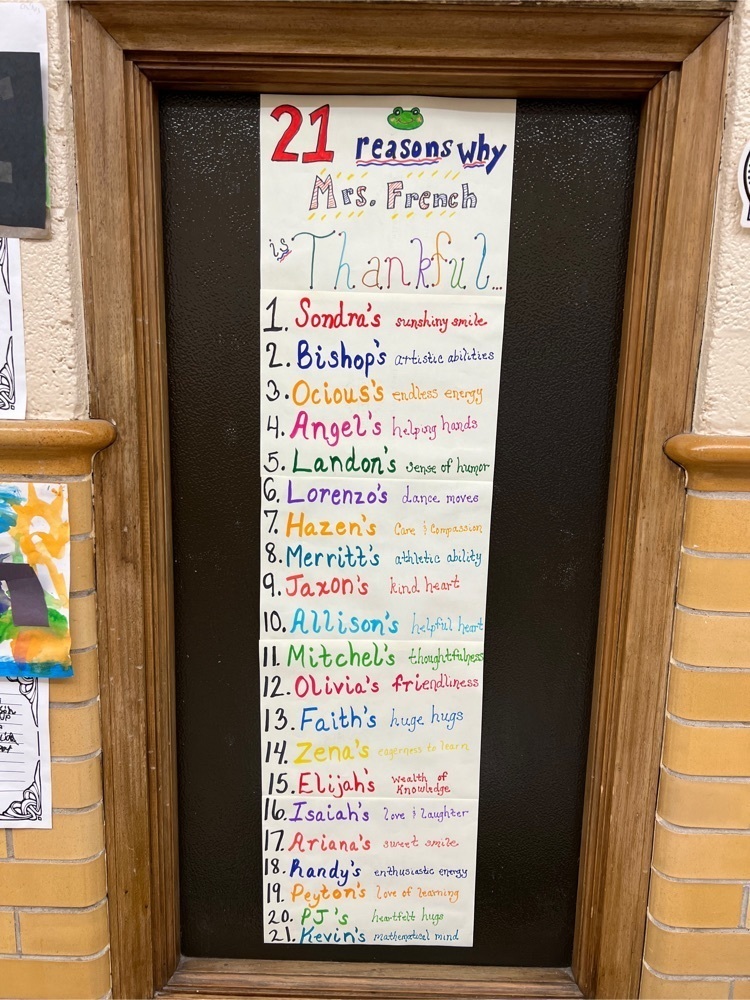 21 reasons why
Mrs. French
is Thankful...
1. Sondra's sunshiny smile
2. Bishop's artistic abilities
3. Ocious's endless energy
4. Angel's helping hands
5. Landon's sense of humor
6. Lorenzo's dance moves
7. Hazen's Care & Compassion
8. Merritt's athletic ability
9. Jaxon's kind heart
10. Allison's helpful heart
11. Mitchel's thoughtfulness
12. Olivia's friendliness
13. Faith's huge hugs
14. Zena's eagerness to learn
15. Elijah's wealth of
Knowledge
16. Isaiah's love & laughter
17. Ariana's sweet smile
18. Randy's enthusiastic energy
19. Peyton's love of learning
20. PJ's heartfelt hugs
21. Kevin's mathematical mind